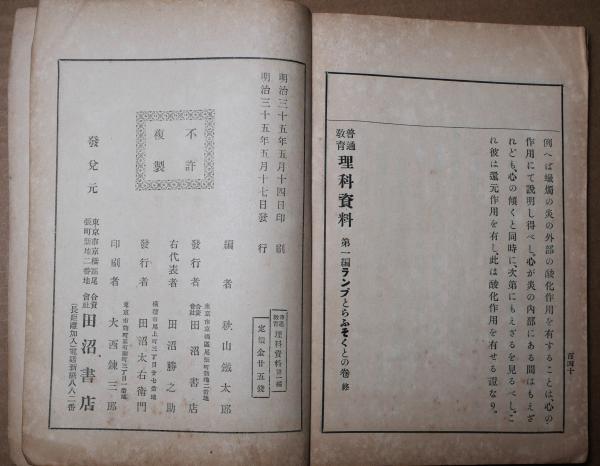 百四十
例へば蠟燭の炎の外部の酸化作用を有することは、心の
作用にて說明し得べし、心が炎の內部にある間はもえざ
れども、心の傾くと同時に、次第にもえざるを見るべし、こ
れ彼は還元作用を有し、此は酸化作用を有せる證なり。
普通
敎育
理科資料 第一編 ランプとらふそくとの卷 終
明治三十五年五月十四日印刷
明治三十五年五月十七日發行
不許
複製
普通
敎育
理科資料第一編
定價金廿五錢
編者 秋山鐵太郎
東京市京橋區尾張町新地二番地
發行者 合資會社 田沼書店
右代表者 田沼勝之助
發行者 田沼太右衛門
印刷者 大西鍊三郎
發兌元
東京市京橋區尾
張町新地二番地
合資
會社
田沼書店
(長距離加入)電話新橋八八二番